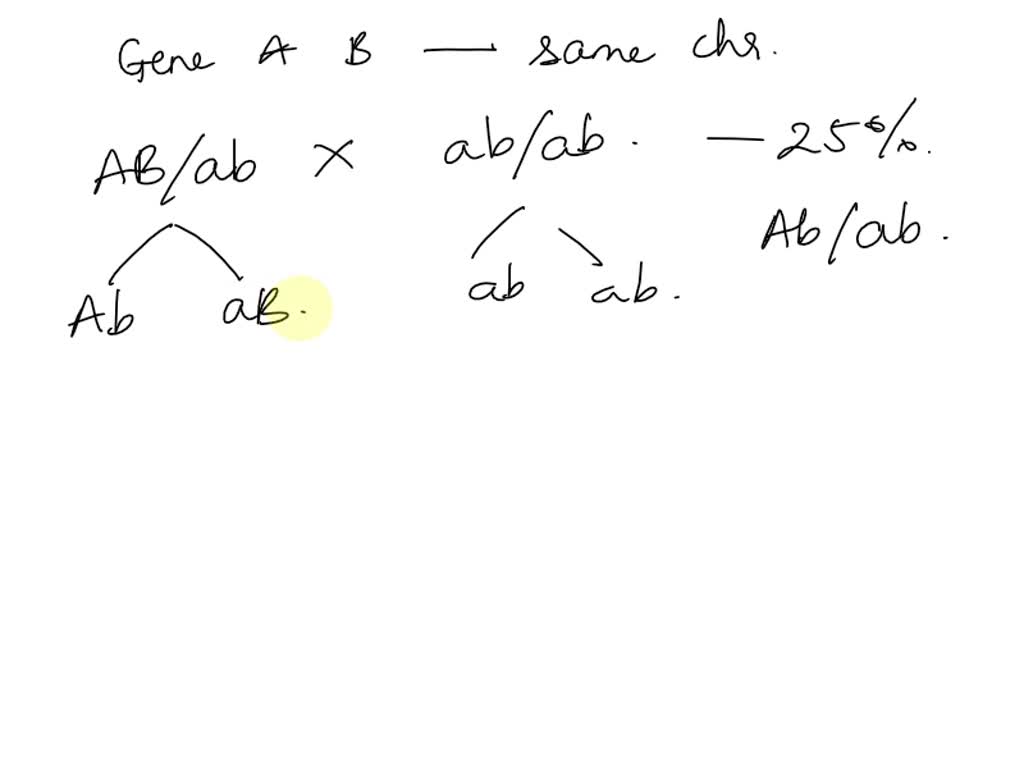 Gene A B — same chr.
AB/ab × ab/ab. — 25%.
Ab/ab.
Ab aB. ab ab.